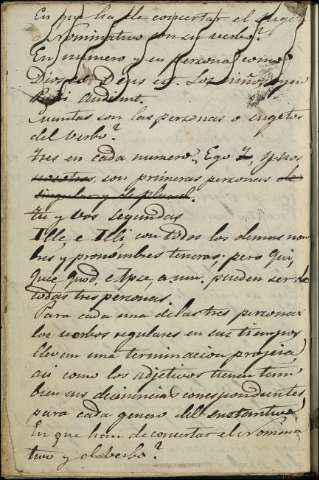 En que ha de concertar el sugeto
nominativo con su verbo?
En numero y en persona, como
Dios es Deus est. Los niños oyen
Pueri audiunt.
Cuantas son las personas o sugetos
del verbo?
Tres en cada numero. Ego
nosotros, son primeras personas de
singular y de plural.
tu y vos segundas
Ille, e Illi con todos los demas nom
bres y pronombres terceras: pero Qui,
Quae, Quod, e Ipse, a, um. pueden ser de
todas tres personas.
Para cada una de las tres personas
los verbos regulares en sus tiempos
llevan una terminacion propia,
asi como los adjetivos tienen tam
bien sus desinencias correspondientes
para cada genero del sustantivo
En que han de concertar el nomina
tivo y el verbo?